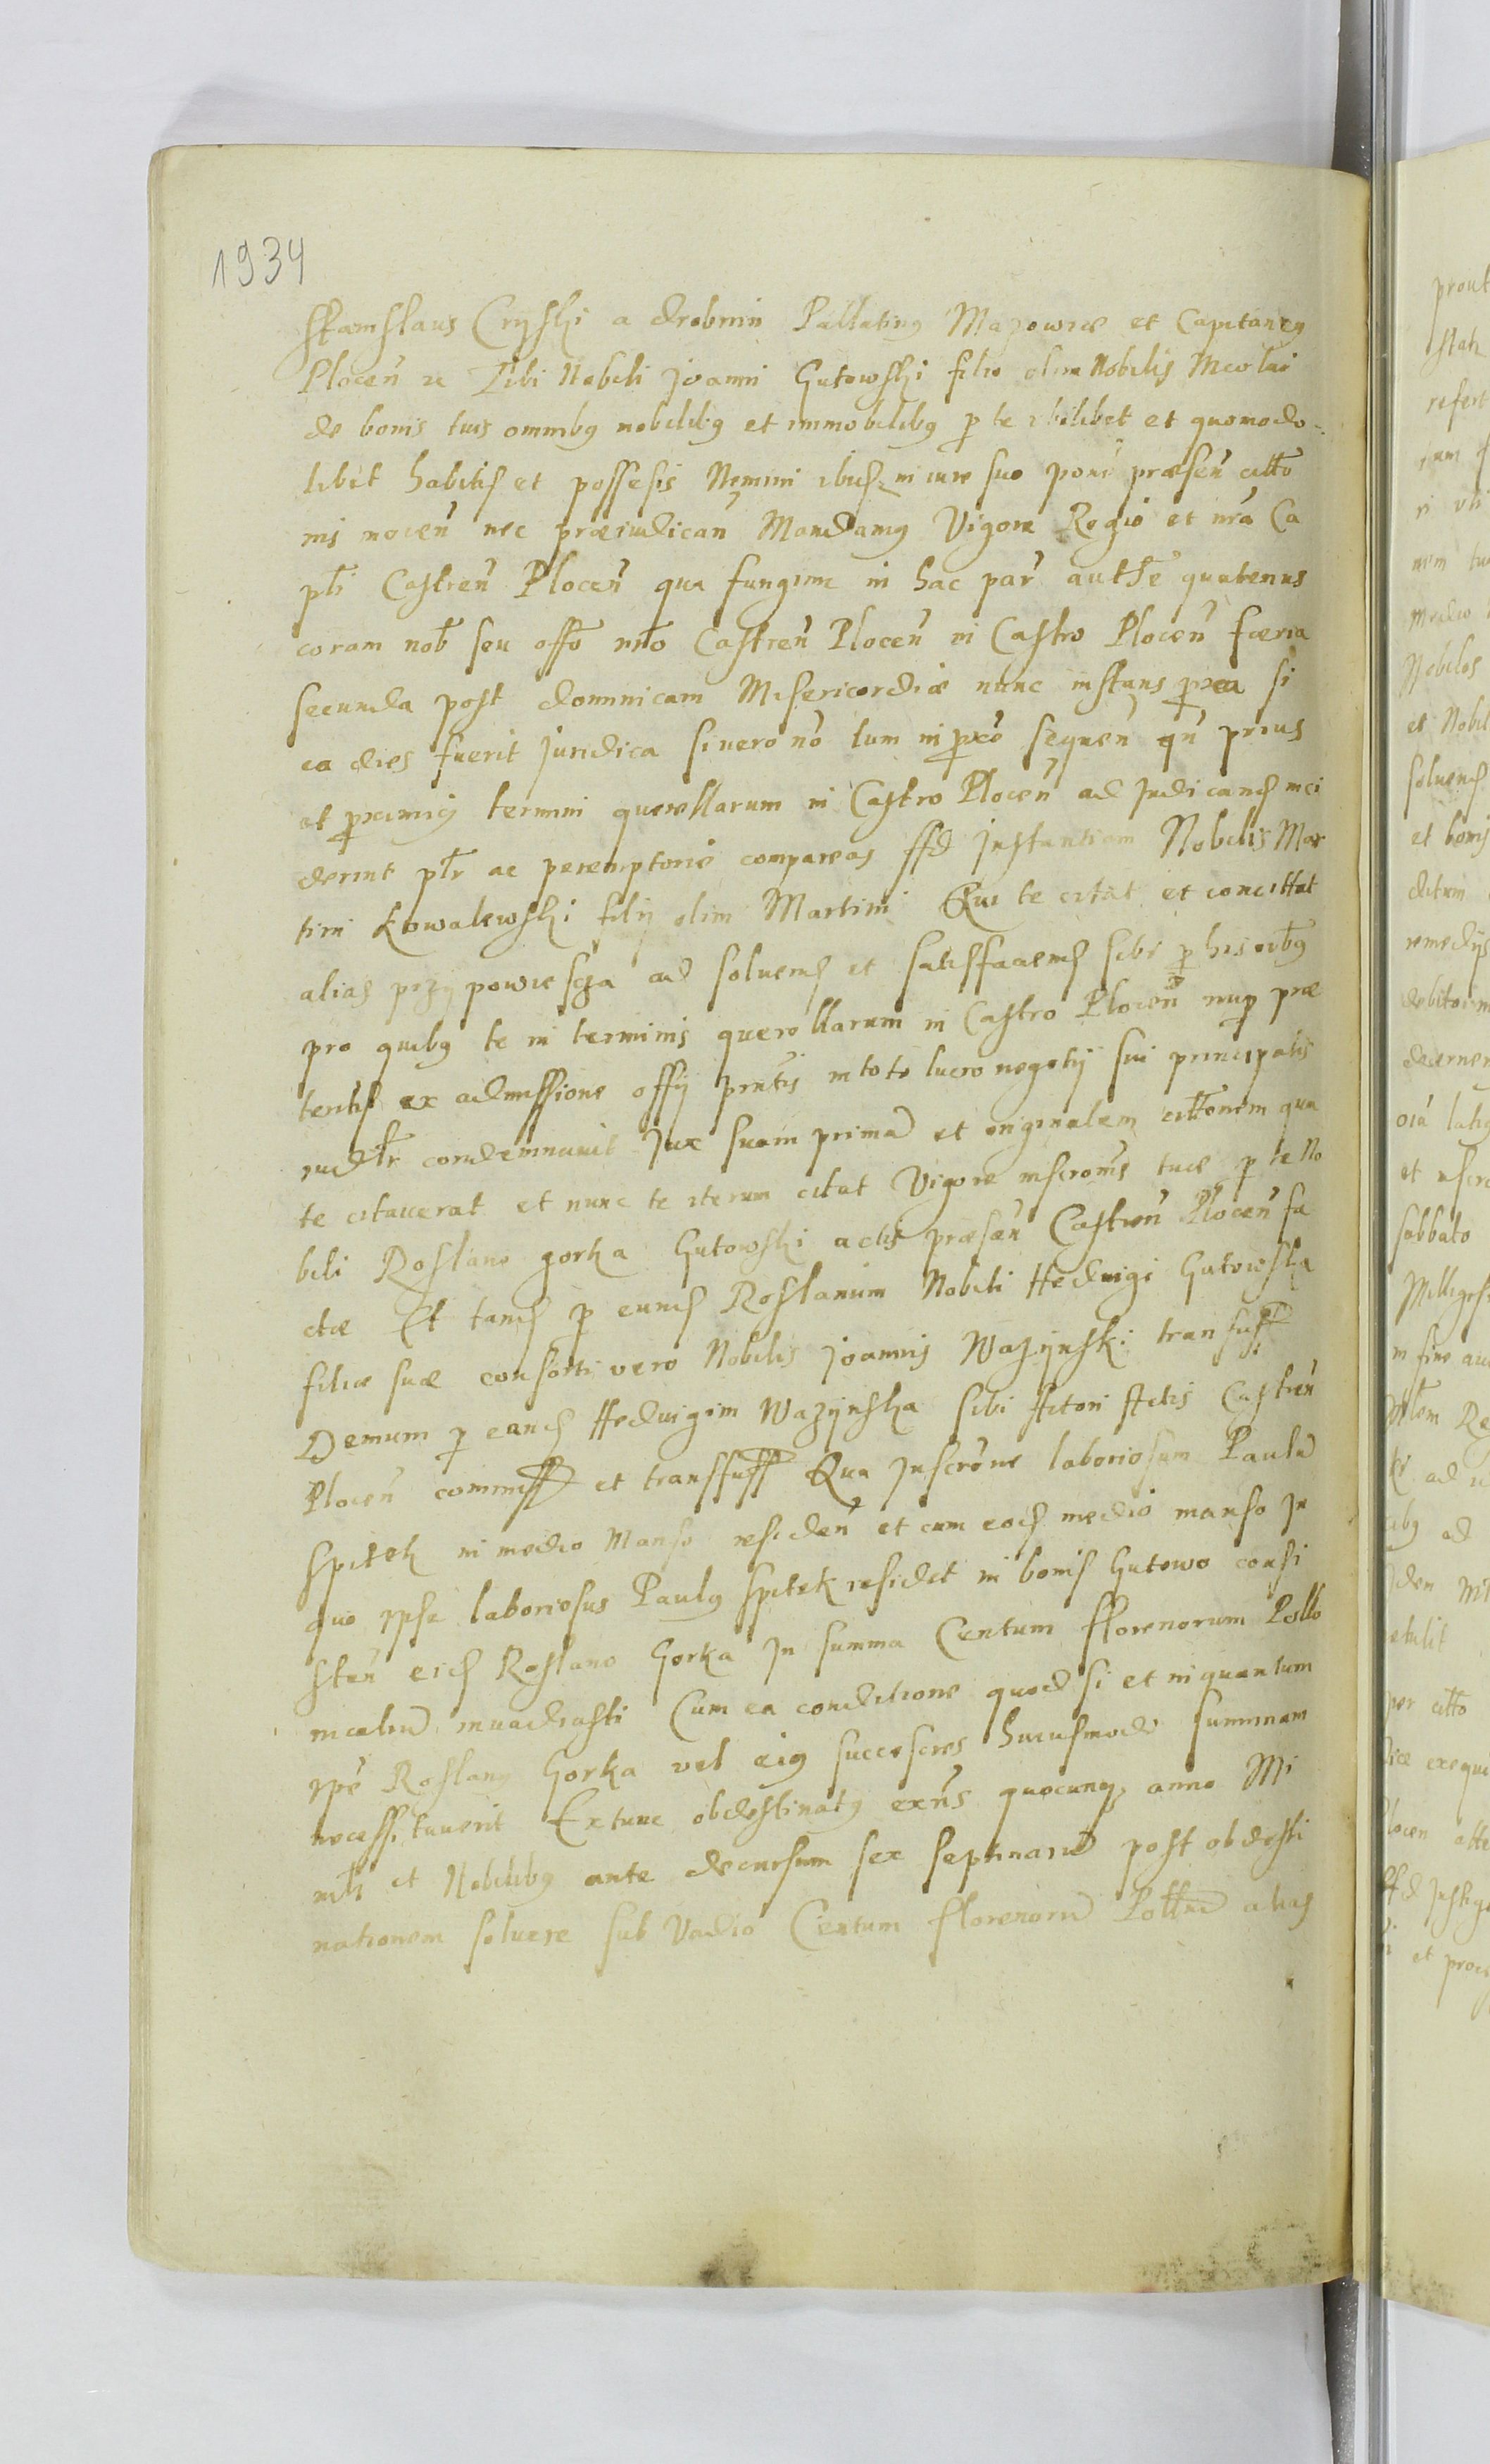 1934
Stanislaus Cryski a drobnin Pallatinus Mazowiæ et Capitaneus
Plocen̄ rc Tibi Nobili Joanni Gutowski filio olim Nobilis Nicolai
de bonis tuis omnibus mobilibus et immobilibus ꝑ te ubilibet et quomodo-
libet habitis et possesis Nemini ibid in iure suo poñ præsen̄ citto
nis nocen̄ nec præiudican̄ Mandamus Vigore Regio et nrã Ca
ptı̃ Castren̄ Plocen̄ qua fungimr in hac par̃ autħe quatenus
coram nob̃ seu offõ nrõ Castren̄ Plocen̄ in Castro Plocen̄ færia
secunda post dominicam Misericordiæ nunc instans ꝓxa si
ea dies fuerit Juridica si vero nõ tum in ꝓxõ sequen̄ qñ prius
et ꝓximius termini querellarum in Castro Plocen̄ ad Judicand inci
derint ptr̃ ac peremptorie compareas ad Instantiam Nobilis Mar
tini Kowalewski filij olim Martini Qui te citat et concittat
alias przypowiescza ad soluend et satisfaciend sibi ꝑ his oĩbus
pro quibus te in terminis querellarum in Castro Plocen̄ nuꝑ præ
teritis ex admissione offij prñtis in toto lucro negotij sui principalis
iudltr̃ condemnauit Jux suam primã et originalem cittonem qua
te citauerat et nunc te iterum citat Vigore inscroñis tuæ ꝑ te No
bili Roslano gorka Gutowski actis præsen̄ Castren̄ Plocen̄ fa
ctæ Et tand ꝑ eund Roslanum Nobili Hedvigi Gutowska
filiæ suæ consorti vero Nobilis Joannis Wazynski transfuss
Demum ꝑ eand Hedvigim Wazynska sibi Actori Actis Castren̄
Plocen̄ commiss et transfuss Qua Inscrõne laboriosum Paulũ
Spitek in medio Manso residen̄ et cum eod medio manso In
quo ipse laboriosus Paulus Spitek residet in bonis Gutowo consi
sten̄ eid Roslano Gorka In summa Centum florenorum Pollo
nicaliũ inuadiasti Cum ea conditione quod si et in quantum
ipẽ Roslanus Gorka vel eius successores huiusmodi summam
necessitauerit Extunc obdestinatus exñs quocunq; anno Mi
nitı̃ et Nobilibus ante decursum sex septimanũ post obdesti
nationem soluere sub Vadio Centum florenorũ Polliũ alias
prout
statu
refert
medio
Nobiles
et Nobil
soluend
et bonis
ditum
remedijs
debitorum
decernen
et inscro
sabbato
Millegesi
in fine
ad
idem
etulit
per citto
et proc